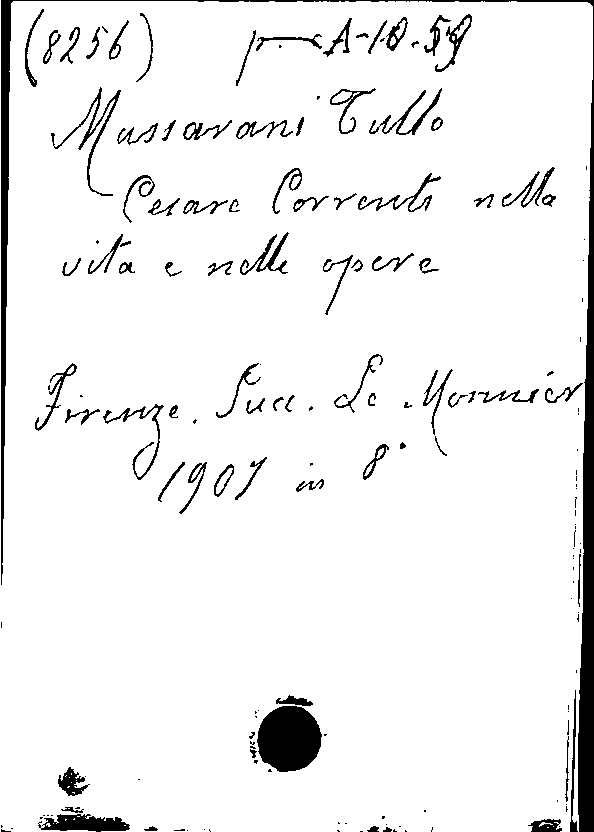 (8256) A-10.59
Massarani Tullo
Cesare Correnti nella
vita e nelle opere
Firenze. Succ. Le Monnier
1907 in 8°